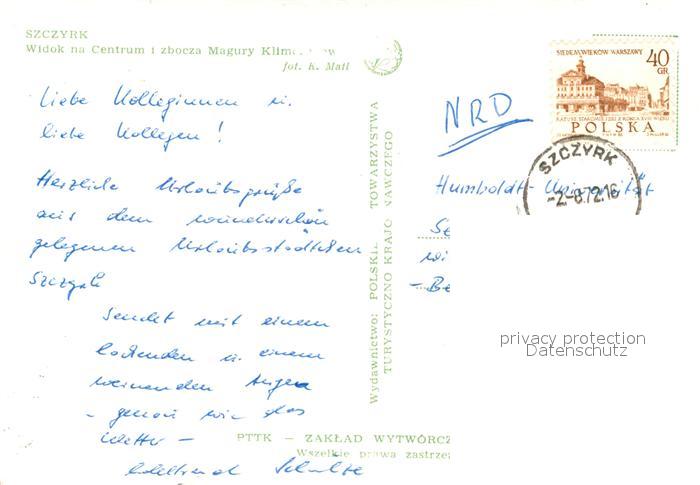 SZCZYRK
Widok na Centrum i zbocza Magury
fot. K. Mali
Liebe Kolleginnen u.
liebe Kollegen!
Herzliche Urlaubsgrüße
aus dem wunderschön
gelegenen Urlaubsstädtchen
Szczyrk
sendet mit einem
lachenden u. einem
weinenden Auge
- genau wie das
Wetter -
Schulze
Wydawnictwo: POLSKIE TOWARZYSTWA
TURYSTYCZNO KRAJOZNAWCZEGO
PTTK — ZAKŁAD WYTWÓRCZ
Wszelkie prawa zastrzeż
SIEDEM WIEKÓW WARSZAWY
40
GR
POLSKA
SZCZYRK
-2.-8.72.16
NRD
Humboldt-Universität
Se
wi
- Be
privacy protection
Datenschutz